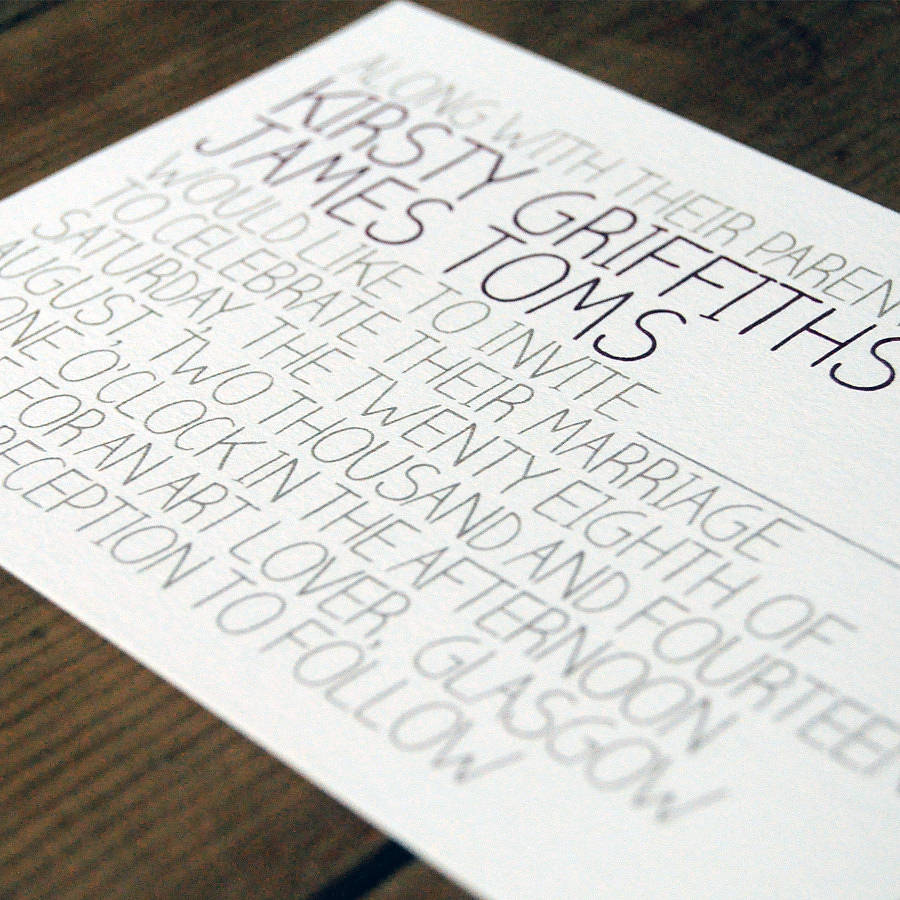 ALONG WITH THEIR PARENT
KIRSTY GRIFFITHS
JAMES TOMS
WOULD LIKE TO INVITE
TO CELEBRATE THEIR MARRIAGE
SATURDAY, THE TWENTY EIGHTH OF
AUGUST, TWO THOUSAND AND FOURTEEN
ONE O'CLOCK IN THE AFTERNOON
FOR AN ART LOVER, GLASGOW
RECEPTION TO FOLLOW